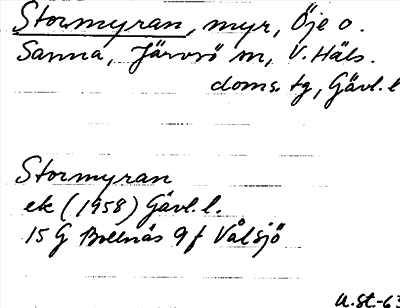 Stormyran, myr, Öje o.
Sanna, Järvsö sn, V. Häls.
doms. tg, Gävl. l
Stormyran
ek (1958) Gävl. l.
15 G Bollnäs 9 f Vålsjö
U.St.-63